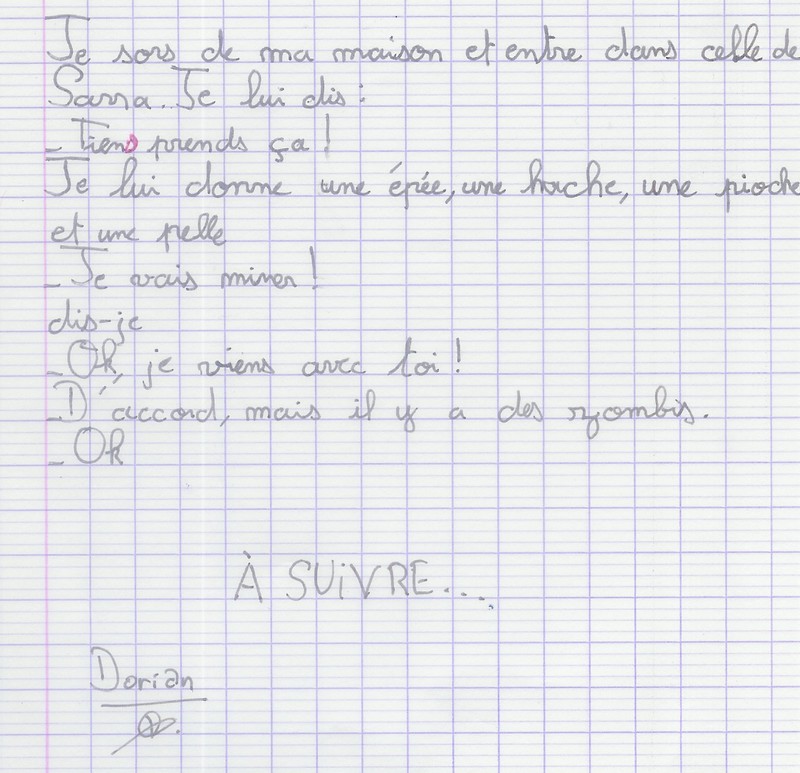 Je sors de ma maison et entre dans celle de
Sarra. Je lui dis :
- Tiens prends ça !
Je lui donne une épée, une hache, une pioche
et une pelle
- Je vais miner !
dis-je
- Ok, je viens avec toi !
- D'accord, mais il y a des zombis.
- Ok
À SUiVRE....
Dorian